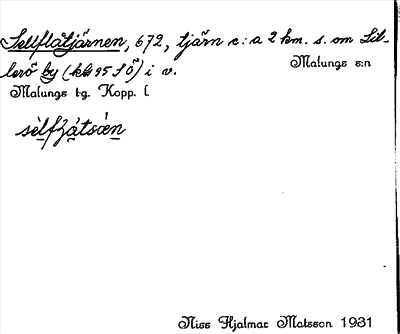 Sellflåtjärnen, 672, tjärn c:a 2 km. s. om Lil-
lerö by (kbl 95 SÖ) i v.
Malungs s:n
Malungs tg. Kopp. l.
Niss Hjalmar Matsson 1931